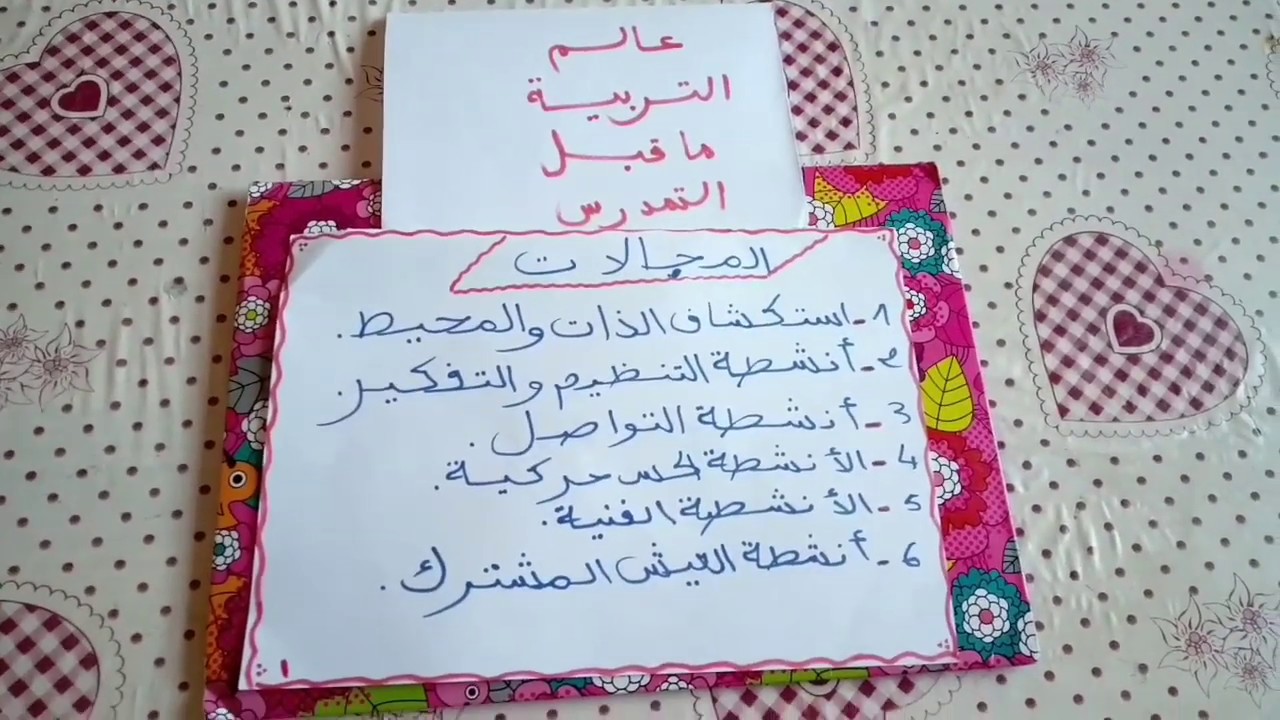 عالم
التربية
ما قبل
التمدرس
المجالات
1-استكشاف الذات والمحيط.
2-أنشطة التنظيم والتفكير.
3-أنشطة التواصل.
4-الأنشطة الحس حركية.
5-الأنشطة الفنية.
6-أنشطة العيش المشترك.
1